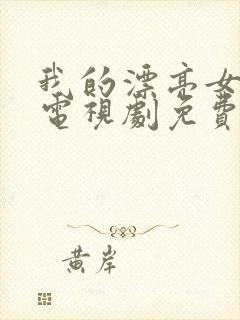 我的漂亮女
電視劇免費
黃岸